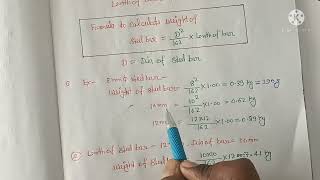 Length of bar
Formula to calculate weight of
Steel bar = D²/162 × Length of bar
D = Dia of Steel bar
① Ex:- 8mm Steel bar -
Weight of Steel bar = 8²/162 × 1.00 = 0.39 kg = 390g
10mm = 10²/162 × 1.00 = 0.62 kg
12mm = 12×12/162 × 1.00 = 0.89 kg
② Length of Steel bar = 12 Dia of bar = 10mm
Weight of Steel 10×10/162 × 12 = 7.41 kg